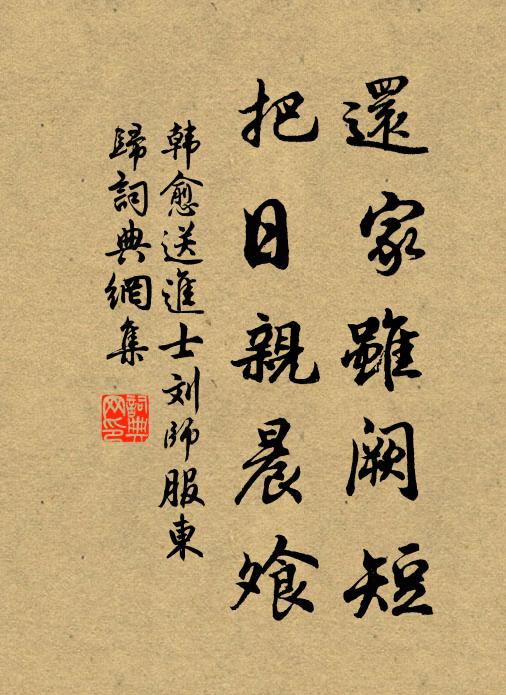 還家雖闕短
把日親晨飧
韩愈送進士刘師服東
歸詞典網集
詞典
网印